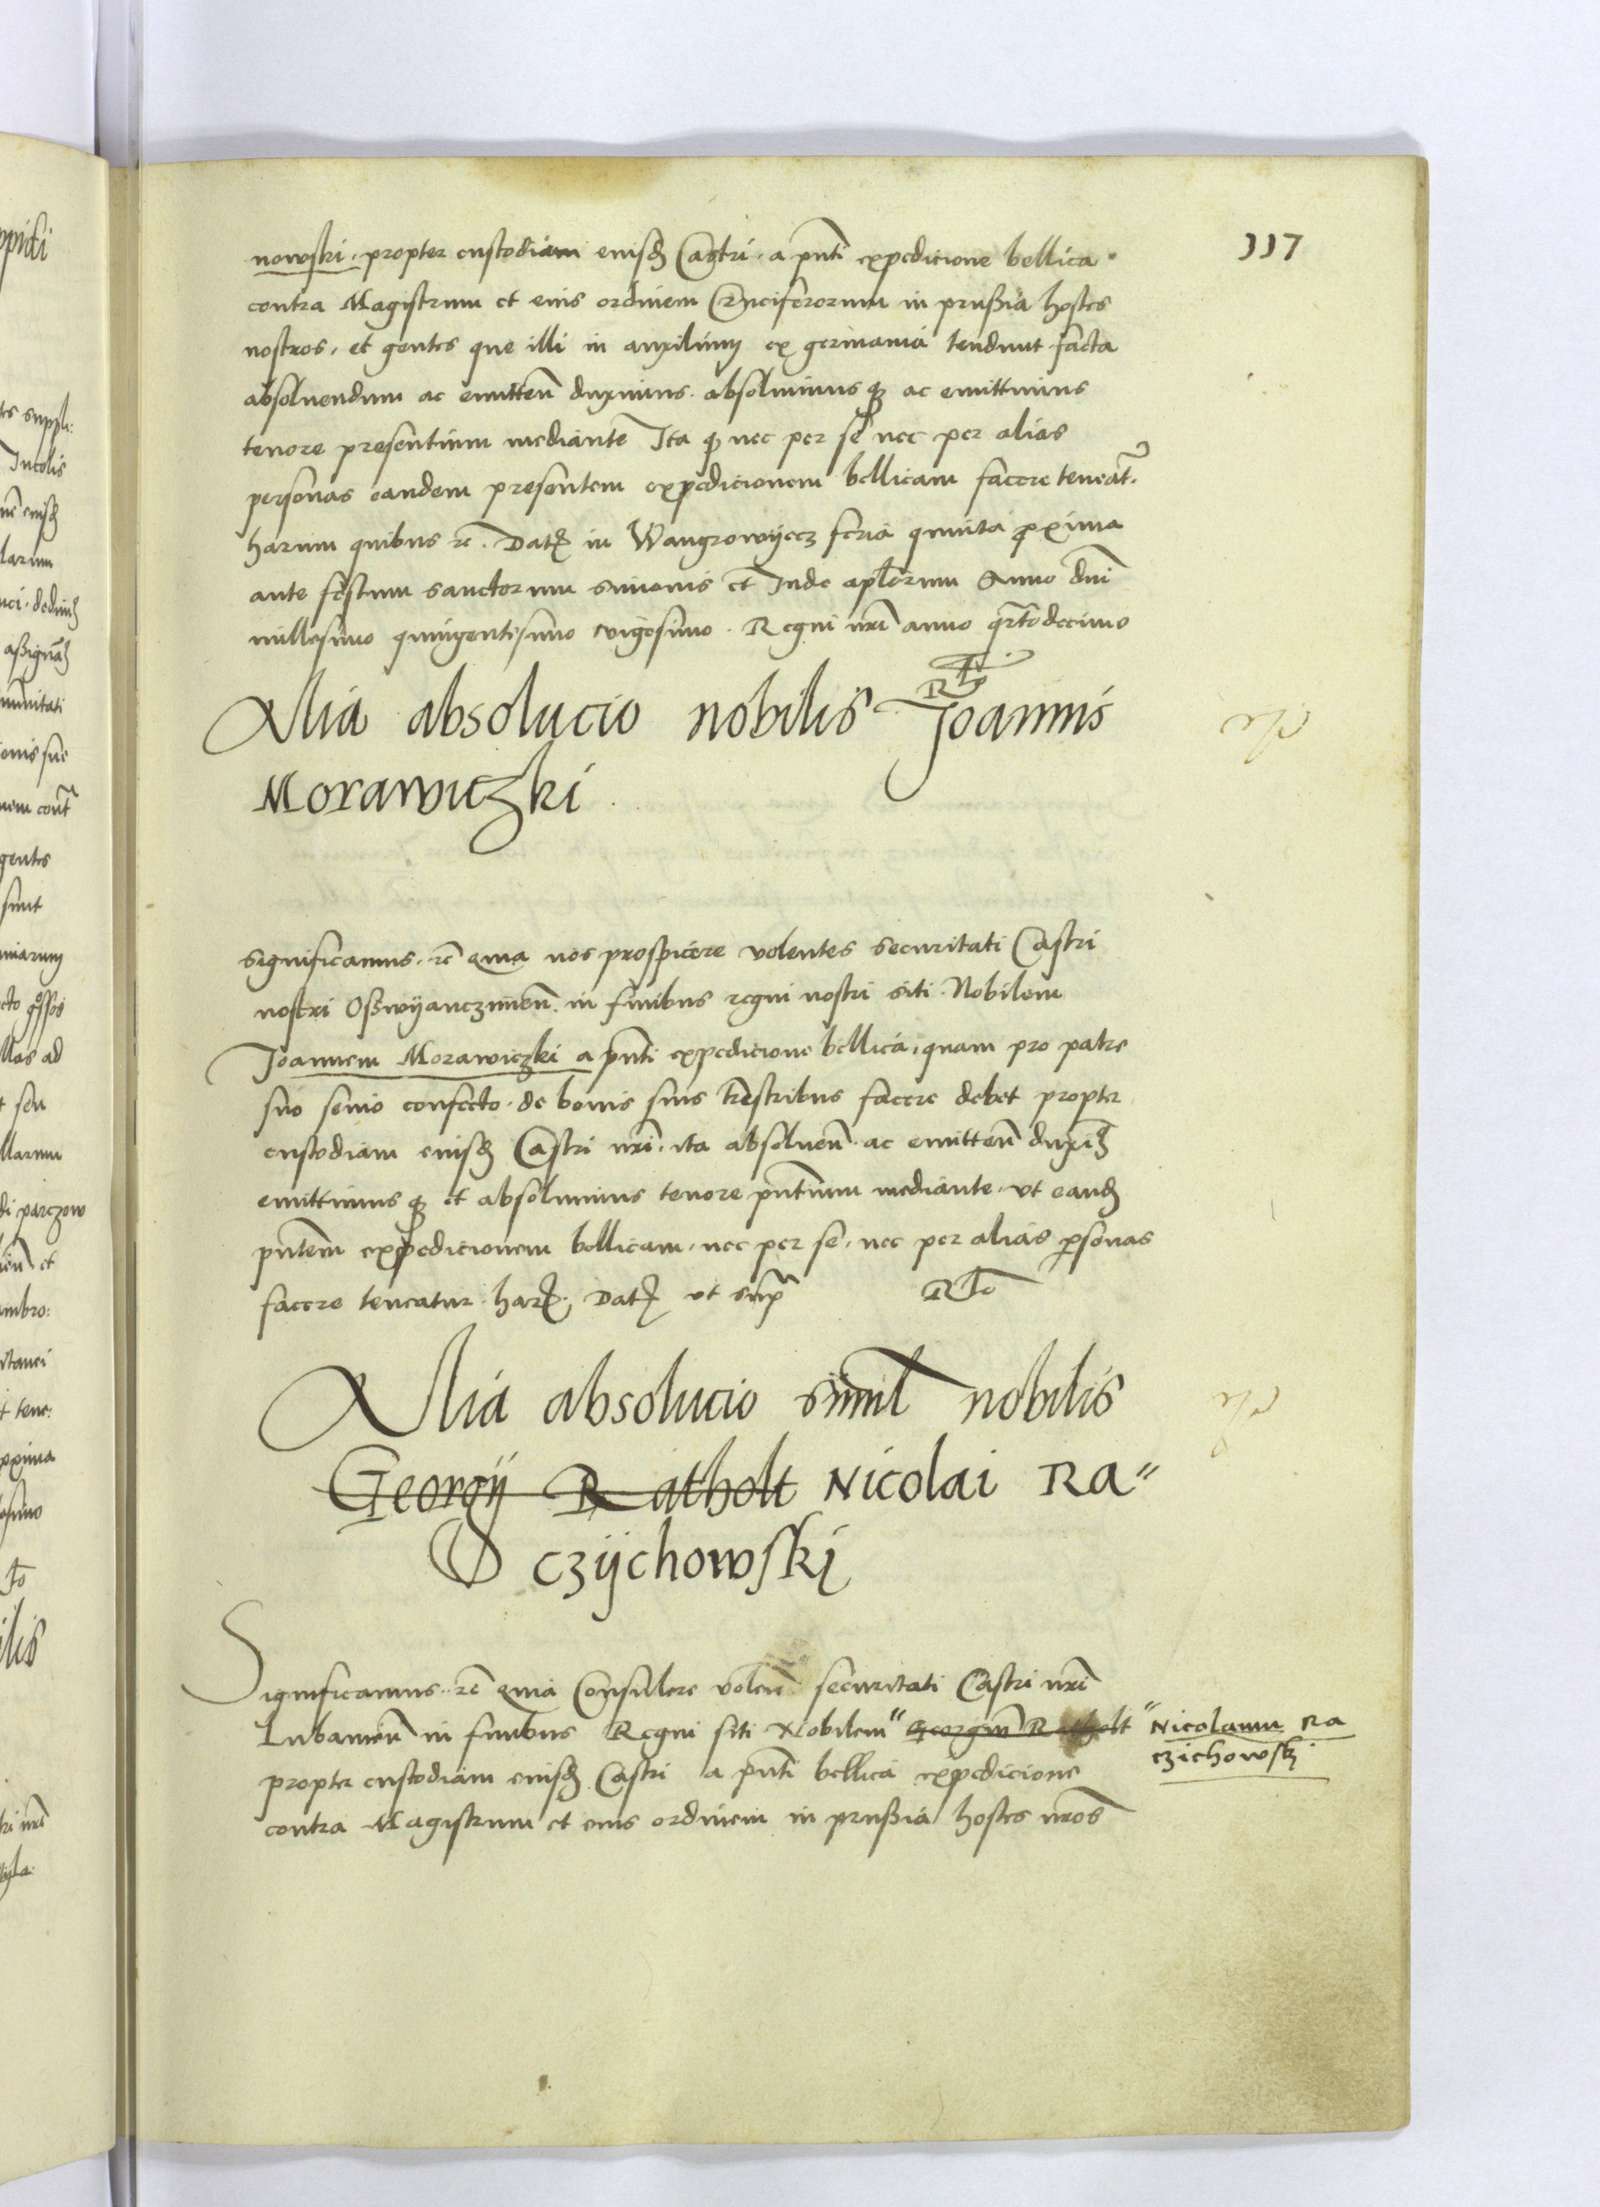 117
nowski, propter custodiam eiusd Castri, a pnti expedicione bellica
contra Magistrum et eius ordinem Cruciferorum in prussia hostes
nostros, et gentes que illi in auxilium ex germania tendunt facta
absoluendum ac emitten duximus. absoluimus q ac emittimus
tenore presentium mediante Ita q nec per se nec per alias
personas eandem presentem expedicionem bellicam facere teneat.
harum quibus rc. Dat in Wangrowyecz feria quinta proxima
ante festum sanctorum Simonis et Jude aplorum Anno dni
millesimo quingentesimo vigesimo. Regni nri anno qrtodecimo
Alia absolucio nobilis Joannis
Morawiczki
Significamus, rc Quia nos prospicere volentes securitati Castri
nostri Osswyanczimen. in finibus regni nostri siti. Nobilem
Joannem Morawiczki a pnti expedicione bellica, quam pro patre
suo senio confecto. de bonis suis trestribus facere debet propter
custodiam eiusd Castri nri. ita absoluen. ac emitten duxi
emittimus q et absoluimus tenore pntium mediante. ut eand
pntem expedicionem bellicam, nec per se, nec per alias psonas
facere teneatur. har. Dat ut supra
Alia absolucio simil nobilis
Georgij Ratholt Nicolai Ra"
czychowski
Significamus. rc Quia Consulere volen securitati Castri nri
Lubanien in finibus Regni siti Nobilem" Georgiu Ratholt "Nicolaum Ra
czichowsk
propter custodiam eiusd Castri a pnti bellica expedicione
contra Magistrum et eius ordinem in prussia hostes nros